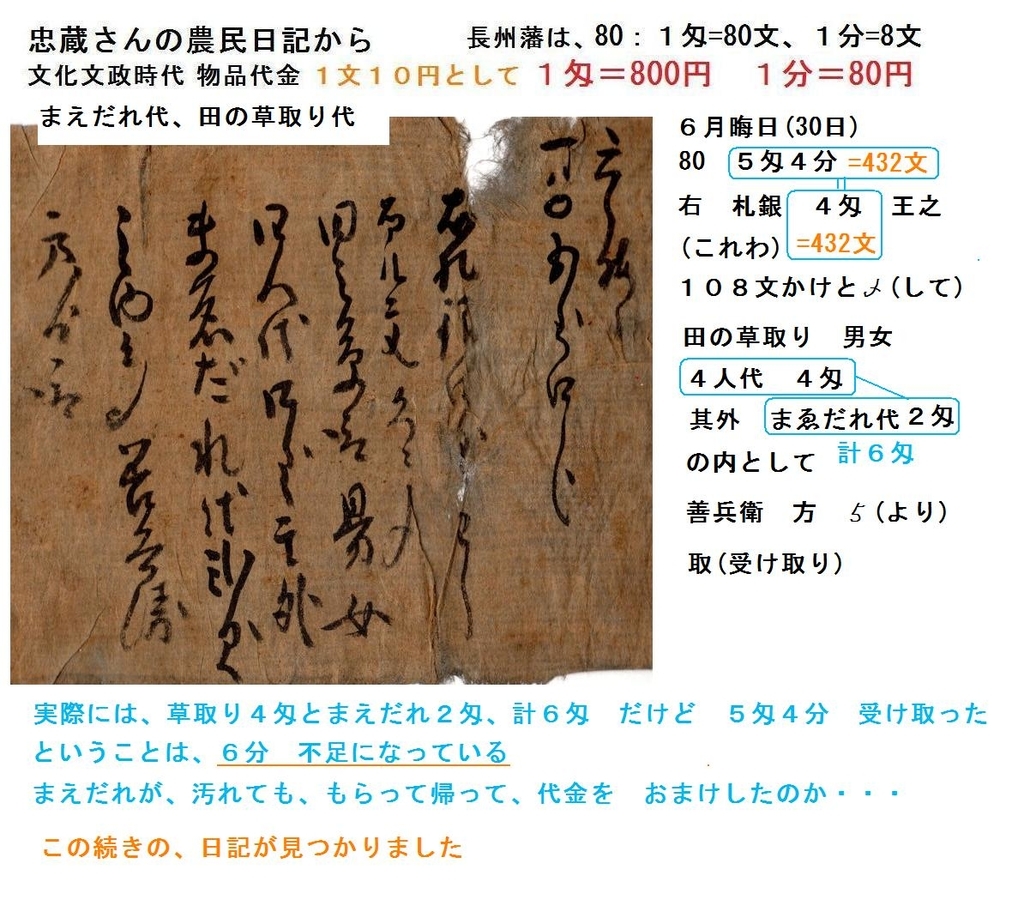 忠蔵さんの農民日記から
長州藩は、80：１匁=80文、１分=8文
文化文政時代 物品代金 １文１０円として １匁＝800円　１分＝80円
まえだれ代、田の草取り代
６月晦日(30日)
80　５匁４分 =432文
右　札銀　４匁　王之
(これわ) =432文
１０８文かけと〆(して)
田の草取り　男女
４人代　４匁
其外　まゑだれ代２匁
の内として　計６匁
善兵衛　方　ゟ(より)
取(受け取り)
田之草取 男女
四人代 四匁 其外
まゑだれ代弐匁
之内として 善兵衛
実際には、草取り４匁とまえだれ２匁、計６匁　だけど　５匁４分　受け取った
ということは、６分　不足になっている
まえだれが、汚れても、もらって帰って、代金を　おまけしたのか・・・
この続きの、日記が見つかりました